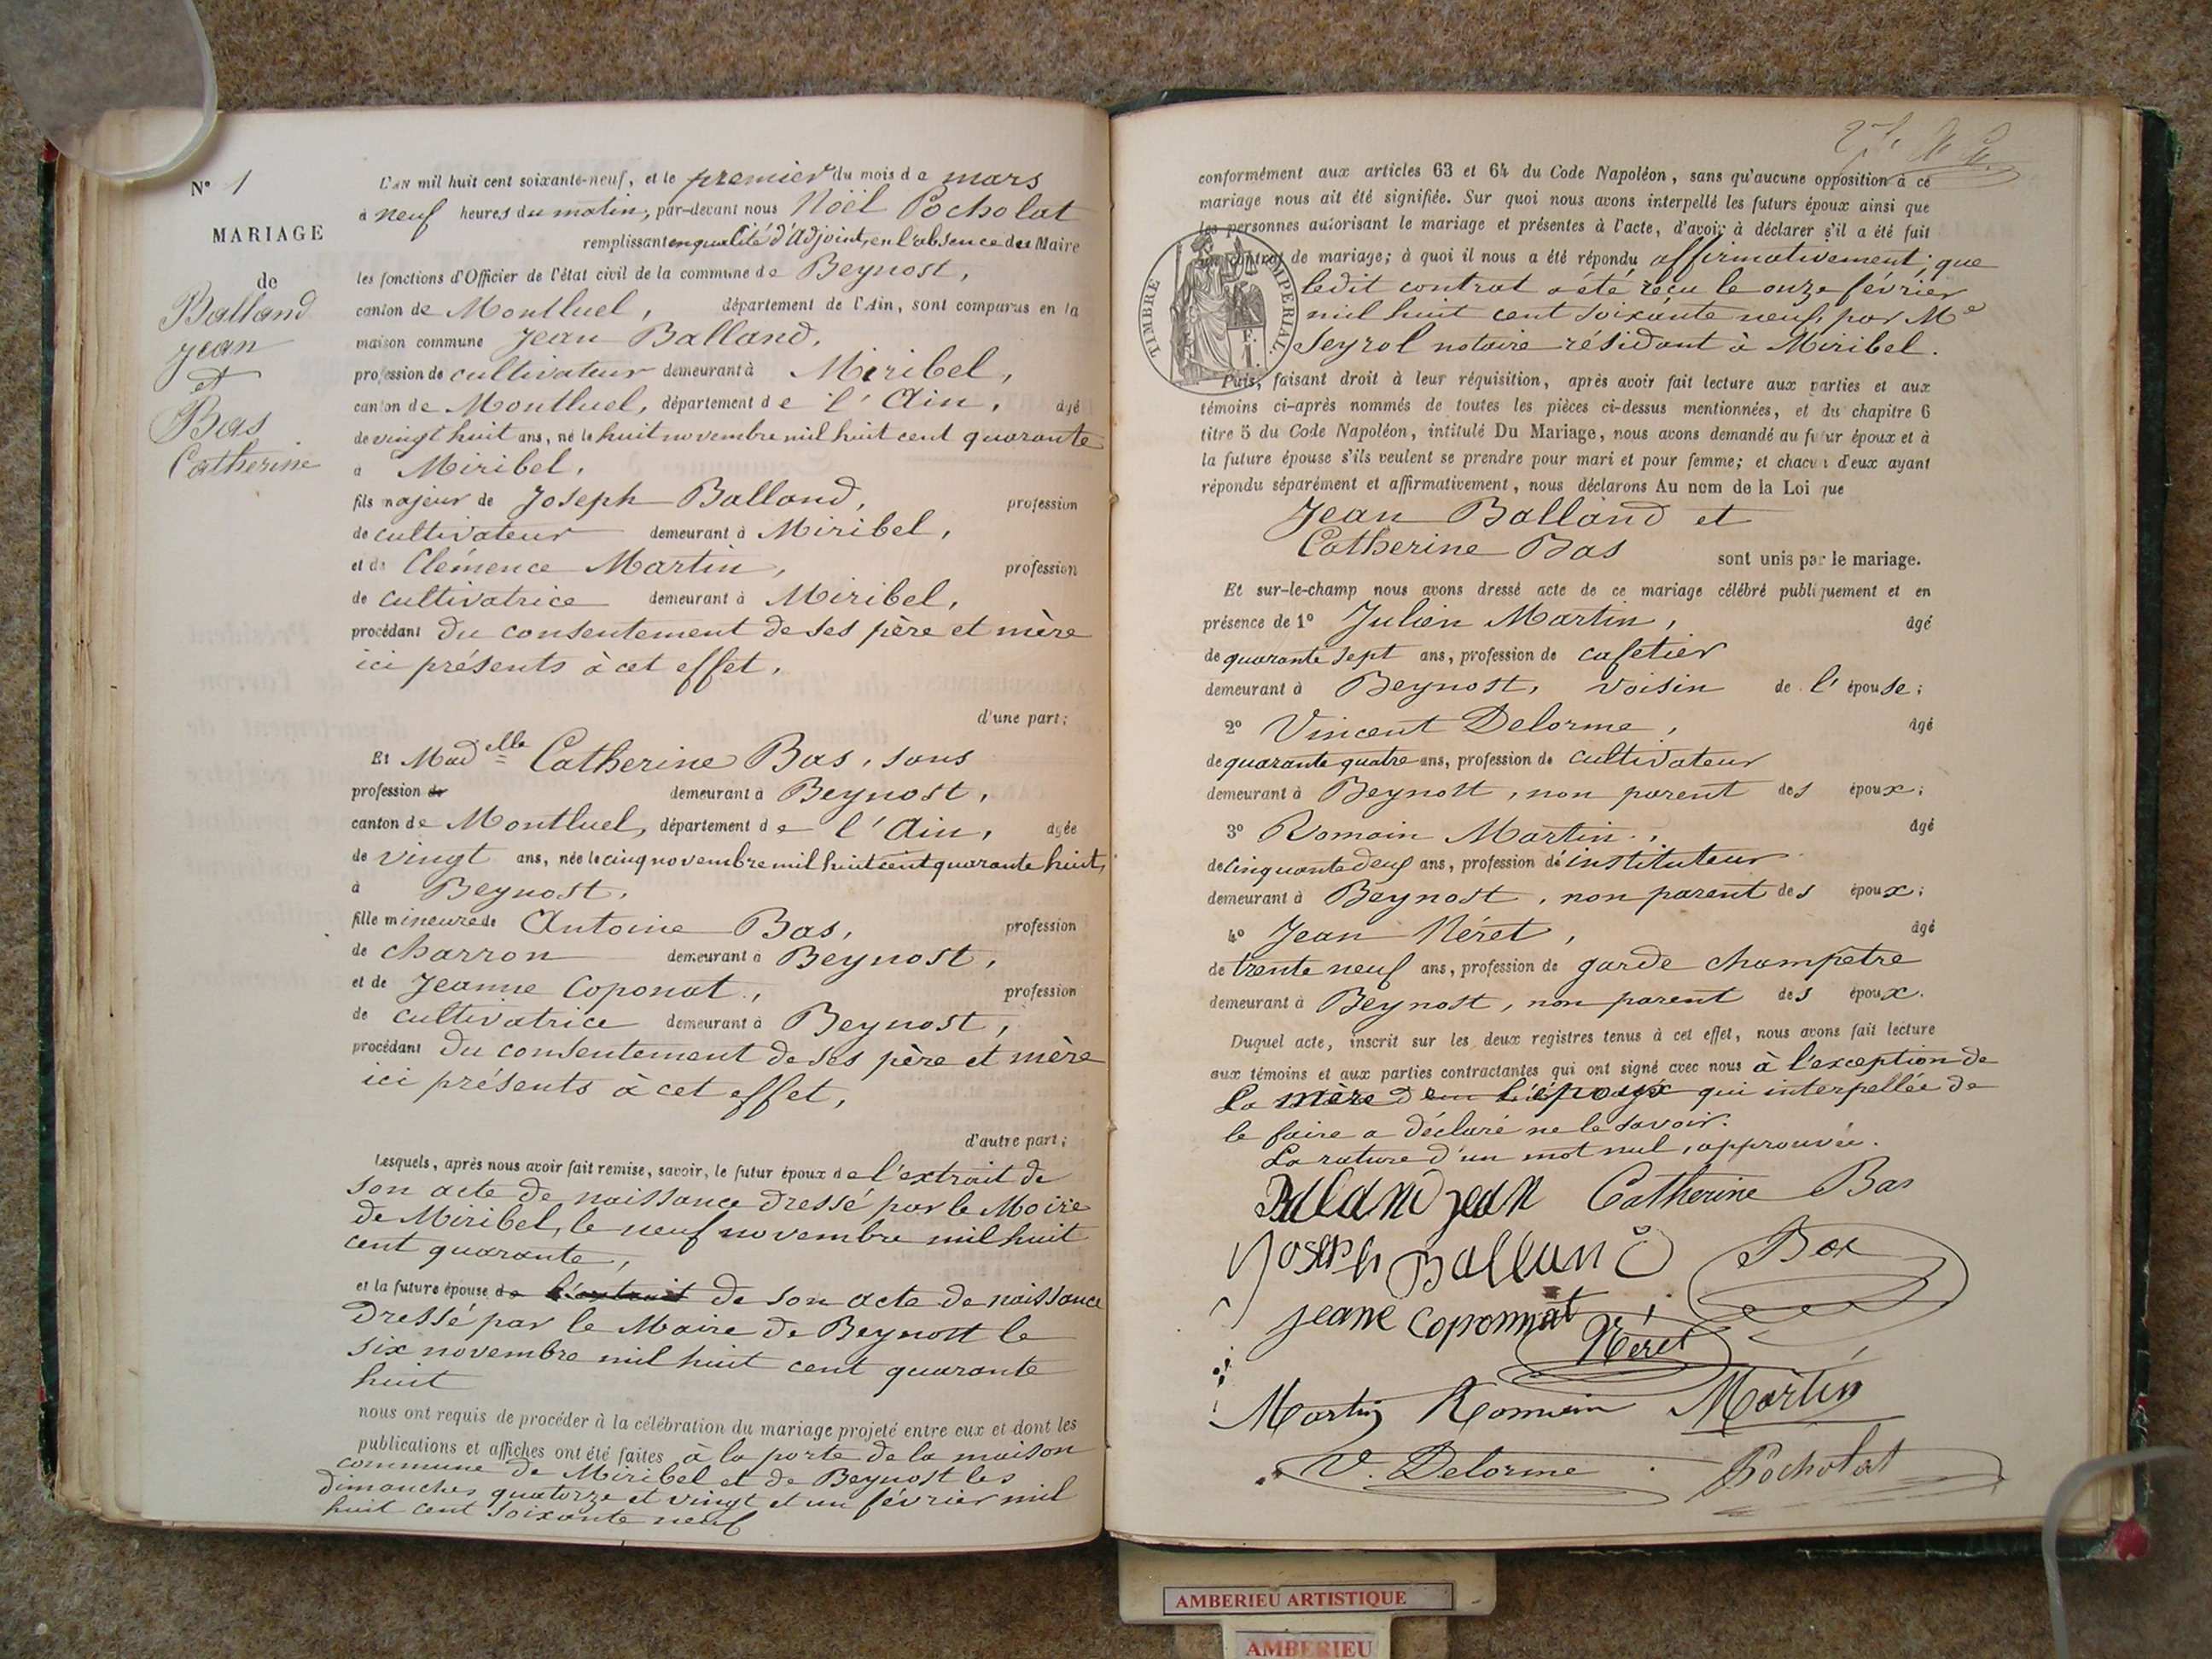 N° 1
MARIAGE
de
Balland
Jean
et
Bas
Catherine
L'AN mil huit cent soixante-neuf, et le premier du mois de mars
à neuf heures du matin, par-devant nous Noël Pocholat
remplissant en qualité d'Adjoint, en l'absence du Maire
les fonctions d'Officier de l'état civil de la commune de Beynost,
canton de Montluel, département de l'Ain, sont comparus en la
maison commune Jean Balland,
profession de cultivateur demeurant à Miribel,
canton de Montluel, département de l'Ain, âgé
de vingt huit ans, né le huit novembre mil huit cent quarante
à Miribel,
fils majeur de Joseph Balland, profession
de cultivateur demeurant à Miribel,
et de Clémence Martin, profession
de cultivatrice demeurant à Miribel,
procédant du consentement de ses père et mère
ici présents à cet effet,
d'une part;
Et Madelle Catherine Bas, sans
profession de demeurant à Beynost,
canton de Montluel, département de l'Ain, âgée
de vingt ans, née le cinq novembre mil huit cent quarante huit,
à Beynost,
fille mineure de Antoine Bas, profession
de charron demeurant à Beynost,
et de Jeanne Coponat, profession
de cultivatrice demeurant à Beynost,
procédant du consentement de ses père et mère
ici présents à cet effet,
d'autre part;
Lesquels, après nous avoir fait remise, savoir, le futur époux de l'extrait de
son acte de naissance dressé par le Maire
de Miribel, le neuf novembre mil huit
cent quarante,
et la future épouse de l'extrait de son acte de naissance
dressé par le Maire de Beynost le
six novembre mil huit cent quarante
huit
nous ont requis de procéder à la célébration du mariage projeté entre eux et dont les
publications et affiches ont été faites à la porte de la maison
commune de Miribel et de Beynost les
dimanches quatorze et vingt et un février mil
huit cent soixante neuf
conformément aux articles 63 et 64 du Code Napoléon, sans qu'aucune opposition à ce
mariage nous ait été signifiée. Sur quoi nous avons interpellé les futurs époux ainsi que
les personnes autorisant le mariage et présentes à l'acte, d'avoir à déclarer s'il a été fait
un contrat de mariage; à quoi il nous a été répondu affirmativement; que
ledit contrat a été reçu le onze février
mil huit cent soixante neuf, par Me
Seyrol notaire résidant à Miribel.
TIMBRE IMPERIAL
Puis, faisant droit à leur réquisition, après avoir fait lecture aux parties et aux
témoins ci-après nommés de toutes les pièces ci-dessus mentionnées, et du chapitre 6
titre 5 du Code Napoléon, intitulé Du Mariage, nous avons demandé au futur époux et à
la future épouse s'ils veulent se prendre pour mari et pour femme; et chacun d'eux ayant
répondu séparément et affirmativement, nous déclarons Au nom de la Loi que
Jean Balland et
Catherine Bas sont unis par le mariage.
Et sur-le-champ nous avons dressé acte de ce mariage célébré publiquement et en
présence de 1° Julien Martin, âgé
de quarante sept ans, profession de cafetier
demeurant à Beynost, voisin de l'épouse;
2° Vincent Delorme, âgé
de quarante quatre ans, profession de cultivateur
demeurant à Beynost, non parent des époux;
3° Romain Martin, âgé
de cinquante deux ans, profession d'instituteur
demeurant à Beynost, non parent des époux;
4° Jean Néret, âgé
de trente neuf ans, profession de garde champêtre
demeurant à Beynost, non parent des époux.
Duquel acte, inscrit sur les deux registres tenus à cet effet, nous avons fait lecture
aux témoins et aux parties contractantes qui ont signé avec nous à l'exception de
la mère de l'époux qui interpellée de
le faire a déclaré ne le savoir.
La rature d'un mot nul, approuvée.
Baland jean Catherine Bas
Joseph Balland Bas
jeane coponnat
Néret
Martin Romain Martin
V. Delorme Pocholat
AMBERIEU ARTISTIQUE
AMBERIEU